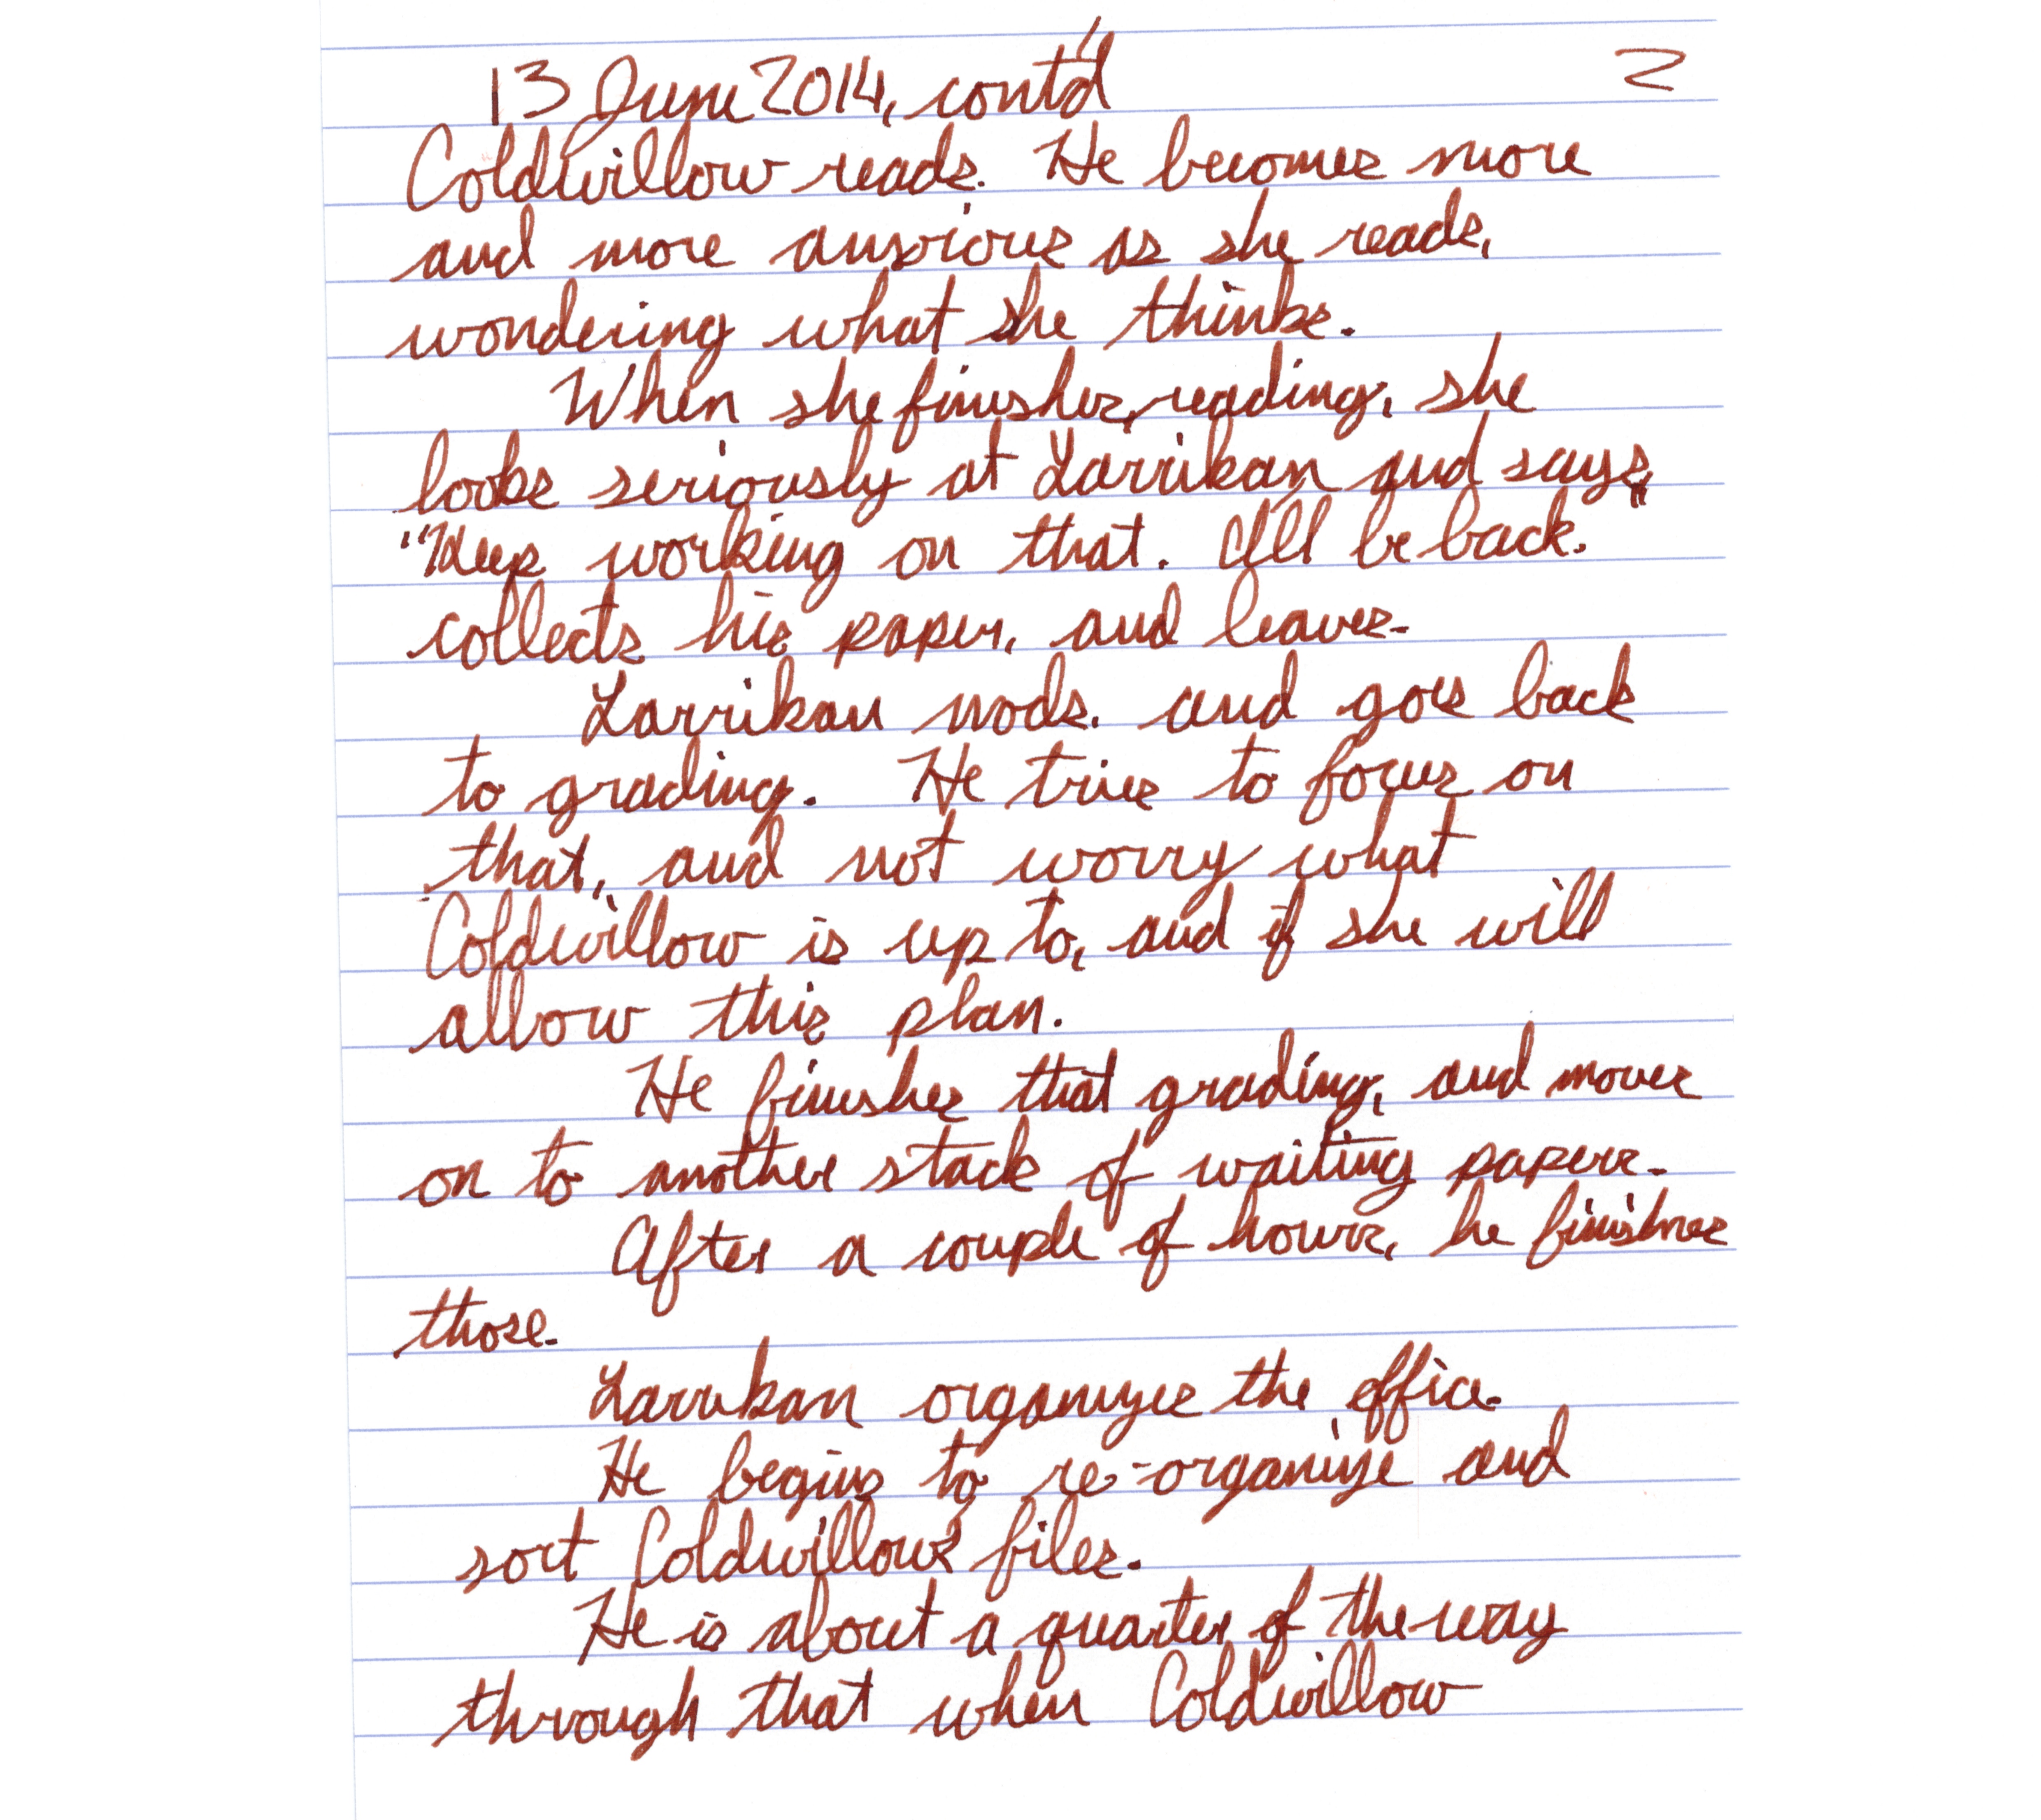 13 June 2014, cont'd 2
Coldwillow reads. He becomes more
and more anxious as she reads,
wondering what she thinks.
When she finishes reading, she
looks seriously at Larrikan and says,
"Keep working on that. I'll be back."
collects his paper, and leaves.
Larrikan nods. and goes back
to grading. He tries to focus on
that, and not worry what
Coldwillow is up to, and if she will
allow this plan.
He finishes that grading, and moves
on to another stack of waiting papers.
After a couple of hours, he finishes
those.
Larrikan organizes the office.
He begins to re-organize and
sort Coldwillow's files.
He is about a quarter of the way
through that when Coldwillow